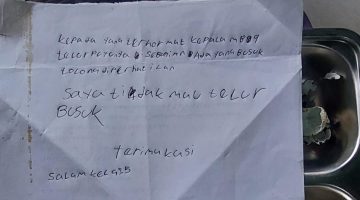 Kepada yang terhormat Kepala MBG
telurnya sebagian ada yang Busuk
tolong diperhatikan
saya tidak mau telur
Busuk
Terimakasi
salam kelas 5